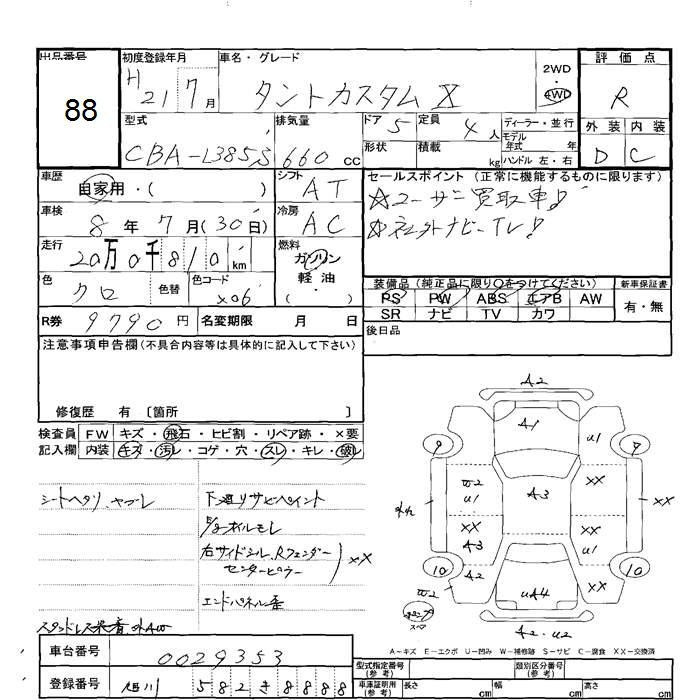 出品番号 88
初度登録年月 H21 7月
車名・グレード タントカスタム X
2WD・4WD
評価点 R
外装 D 内装 C
型式 CBA-L385S
排気量 660 cc
ドア 5 定員 4人
形状 積載 kg
ディーラー・並行
モデル年式 年
ハンドル 左・右
車歴 自家用・( )
シフト AT
セールスポイント (正常に機能するものに限ります)
☆ユーザー買取車!
☆社外ナビーTV!
車検 8年7月(30日)
冷房 AC
走行 20万0千810 km
燃料 ガソリン 軽油・( )
色 クロ 色替 色コード X06
装備品(純正品に限り○をつけてください)
PS PW ABS エアB AW
SR ナビ TV カワ
新車保証書 有・無
R券 9790円 名変期限 月 日
後日品
注意事項申告欄(不具合内容等は具体的に記入して下さい)
修復歴 有 〔箇所 〕
検査員記入欄
FW キズ・飛石・ヒビ割・リペア跡・×要
内装 キズ・汚レ・コゲ・穴・スレ・キレ・破レ
シートヘタリ、ヤブレ
下廻りサビペイント
オイルモレ
右サイドシル、Rフェンダー
センターピラー XX
エンドパネル歪
A2
A1
U1
9 9
W2
U1
A3
XX
XX
XX
XX
A3
U1
10 10
A2
W2
UA4
XX
スペア
A2・U2
A-キズ E-エクボ U-凹み W-補修跡 S-サビ C-腐食 XX-交換済
車台番号 0029353
登録番号 旭川 582き8888
型式指定番号(参考) 類別区分番号(参考)
車庫証明用(参考) 長さ cm 幅 cm 高さ cm